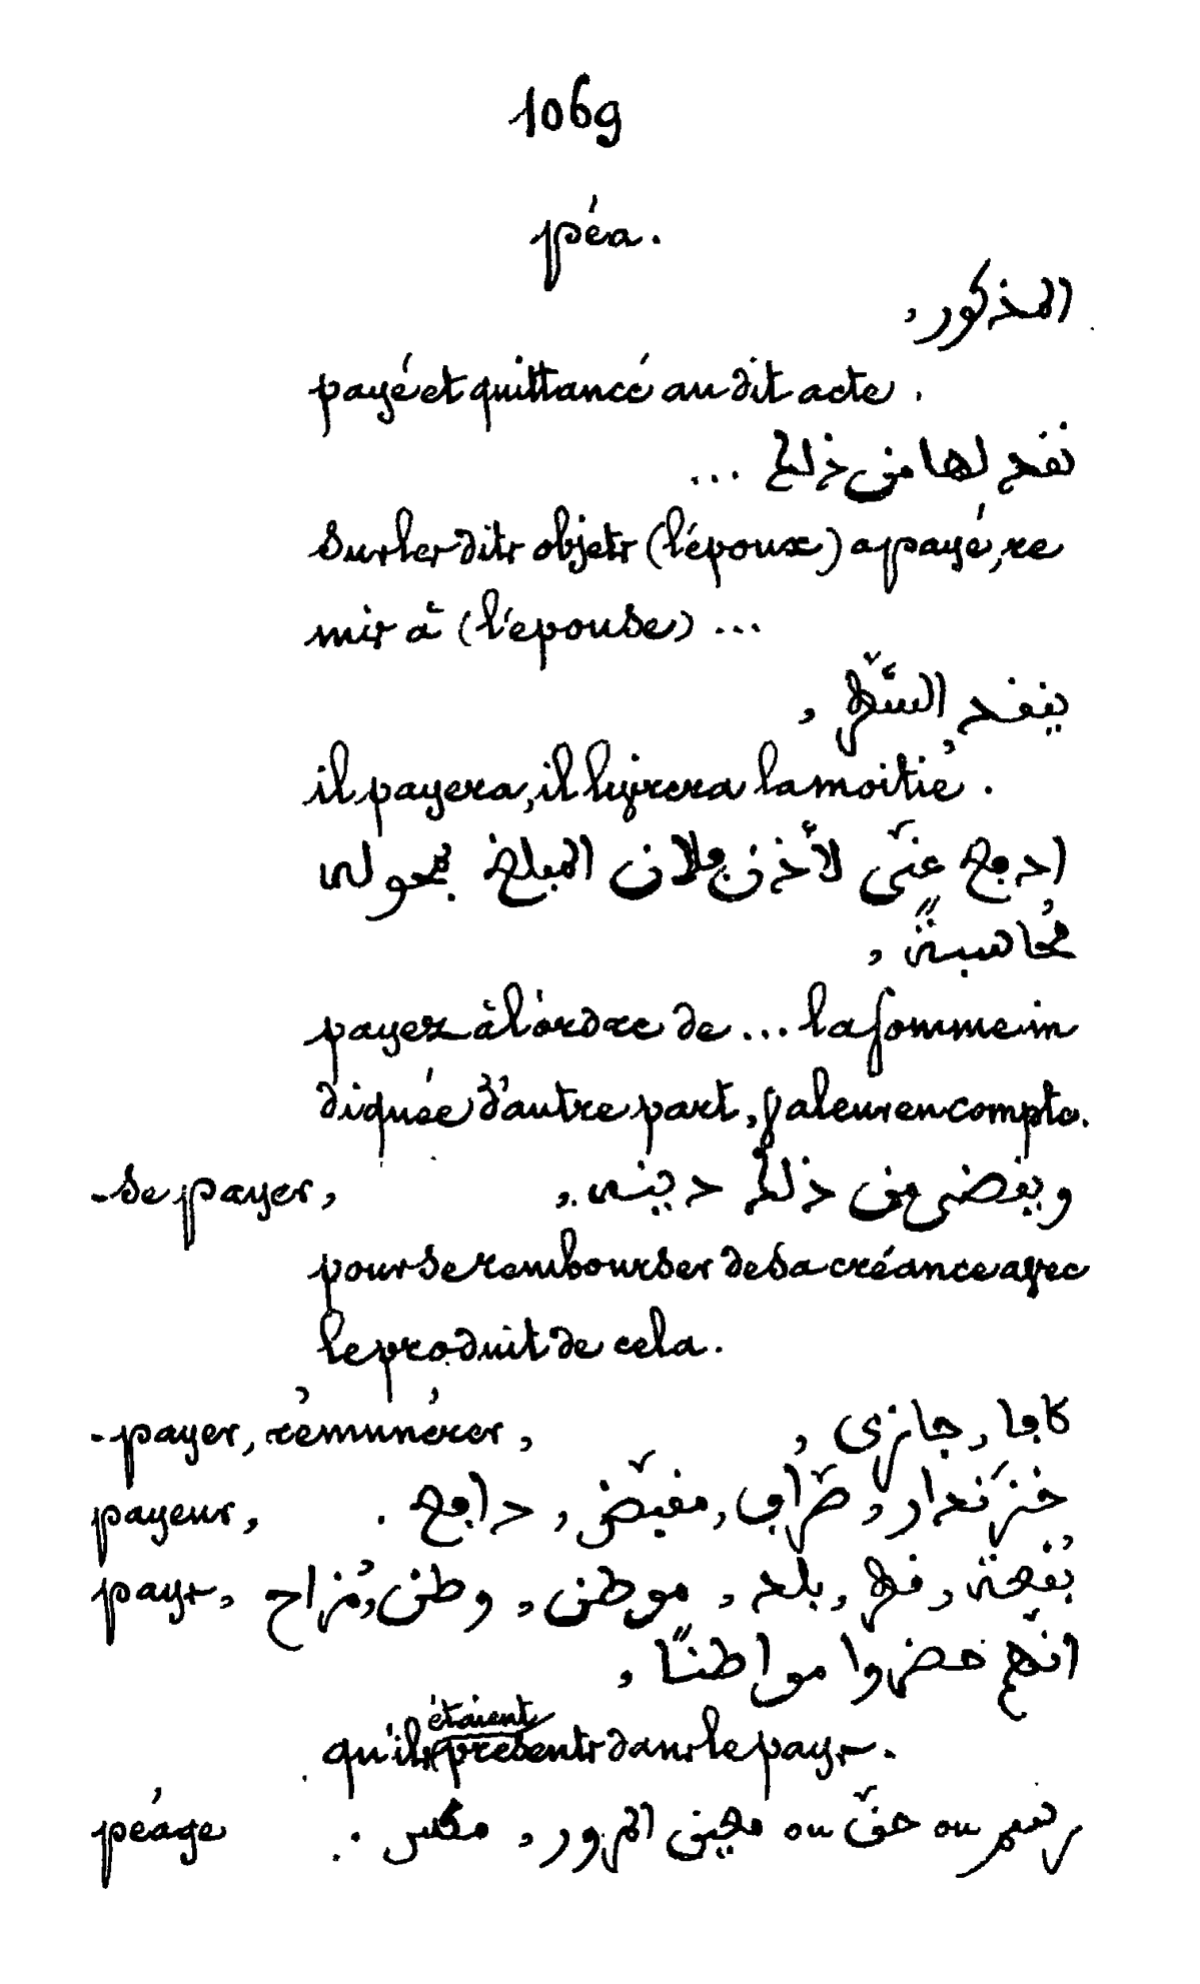 1069
péa.
المذكور,
payé et quittancé au dit acte.
نقد لها من ذلك ...
Sur les dits objets (l'époux) a payé, re
mis à (l'épouse) ...
ينقد الشّطر,
il payera, il livrera la moitié.
ادفع عنّى لأذن فلان المبلغ بمحوله
مُحاسبةً,
payez à l'ordre de ... la somme in
diquée d'autre part, valeur en compte.
-se payer, ويقضى من ذلك دينه,
pour se rembourser de sa créance avec
le produit de cela.
-payer, rémunérer, كافا, جازى,
payeur, خزَندار, صرّاف, مقبّض, دافع.
pays, بُقعة, قطر, بلد, موطن, وطن, مُراح
انّهم حضروا مواطنًا,
qu'ils étaient présents dans le pays.
péage رسم ou حقّ ou معين المرور, مكس.